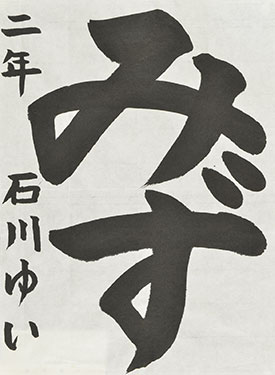 みず
二年 石川ゆい